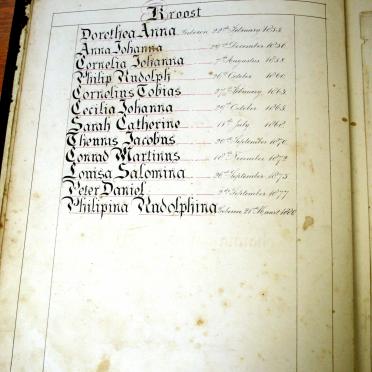 Kroost
Dorothea Anna Geboren 22ste February
Anna Johanna December
Cornelia Johanna 7de Augustus 1858
Philip Rudolph October 1860
Cornelius Tobias February 1863
Cecilia Johanna October 1865
Sarah Catherine July 1868
Thomas Jacobus September 1870
Conrad Martinus November 1872
Louisa Salomina September 1875
Peter Daniel September 1877
Philipina Rudolphina Geboren Maart 1880